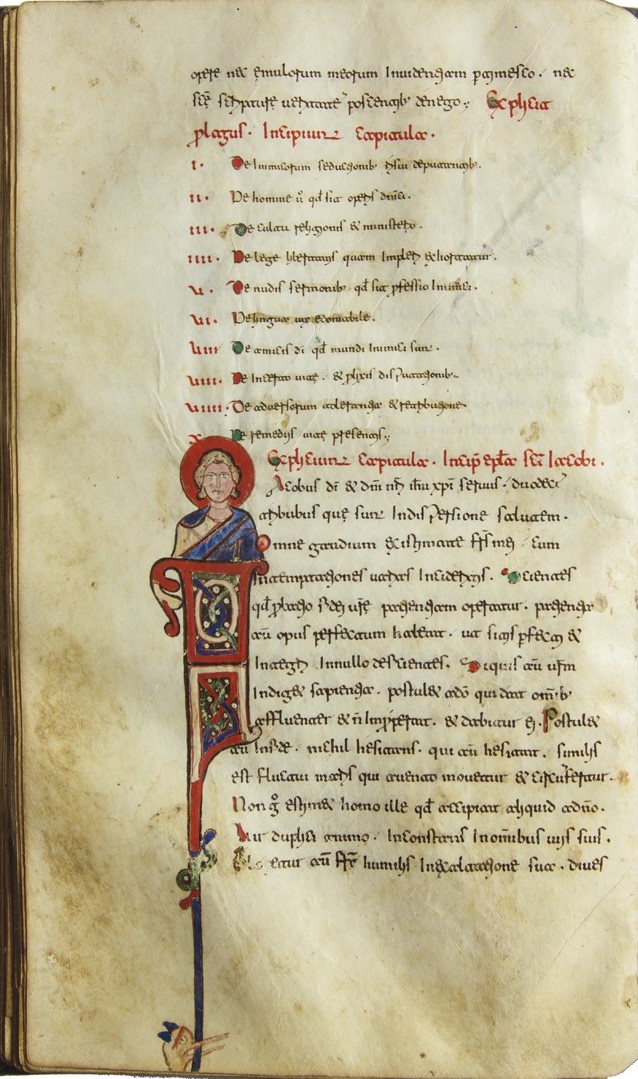 opere nec emulorum meorum Inuidentiam pertimesco. nec
sce scripture ueritate poscentib; denego; Explicit
plogus. Incipiunt capitula.
i. De Inimicorum seductionib;
ii. De homine u qd sit operis dni.
iii. De cultu religionis & ministerio.
iiii. De lege libertatis quam Impleri exhortatur.
u. De nudis sermonib; qd sit pfessio Inimici.
ui. De lingue
uii De amicis di qd mundi Inimici sunt.
uiii. De Incerto uite. & plixis disputationib;.
uiiii. De aduersorum tolerantia & retributione
x De remediis uite presentis;
Expliciunt capitula. Incip epła sci Iacobi.
Iacobus di & dni nri ihu xpi seruus. duodeci
tribubus que sunt In dispersione salutem.
Omne gaudium existimate frs mei cum
In temptationes uarias Incideritis. Scientes
qd pbatio fidei ure patientiam operatur. patientia
autu opus perfectum habeat. ut sitis pfecti &
Integri In nullo deficientes. Siquis autu urm
Indiget sapientia. postulet ado qui dat omib;
affluenter & n Improperat. & dabitur ei. Postulet
autu In fide. nichil hesitans. qui autu hesitat. similis
est fluctui maris qui auento mouetur & circufertur.
Non g estimet homo ille qd accipiat aliquid adno.
Uir duplici animo. Inconstans In omibus uiis suis.
Glorietur autu fr humilis In exaltatione sua. diues